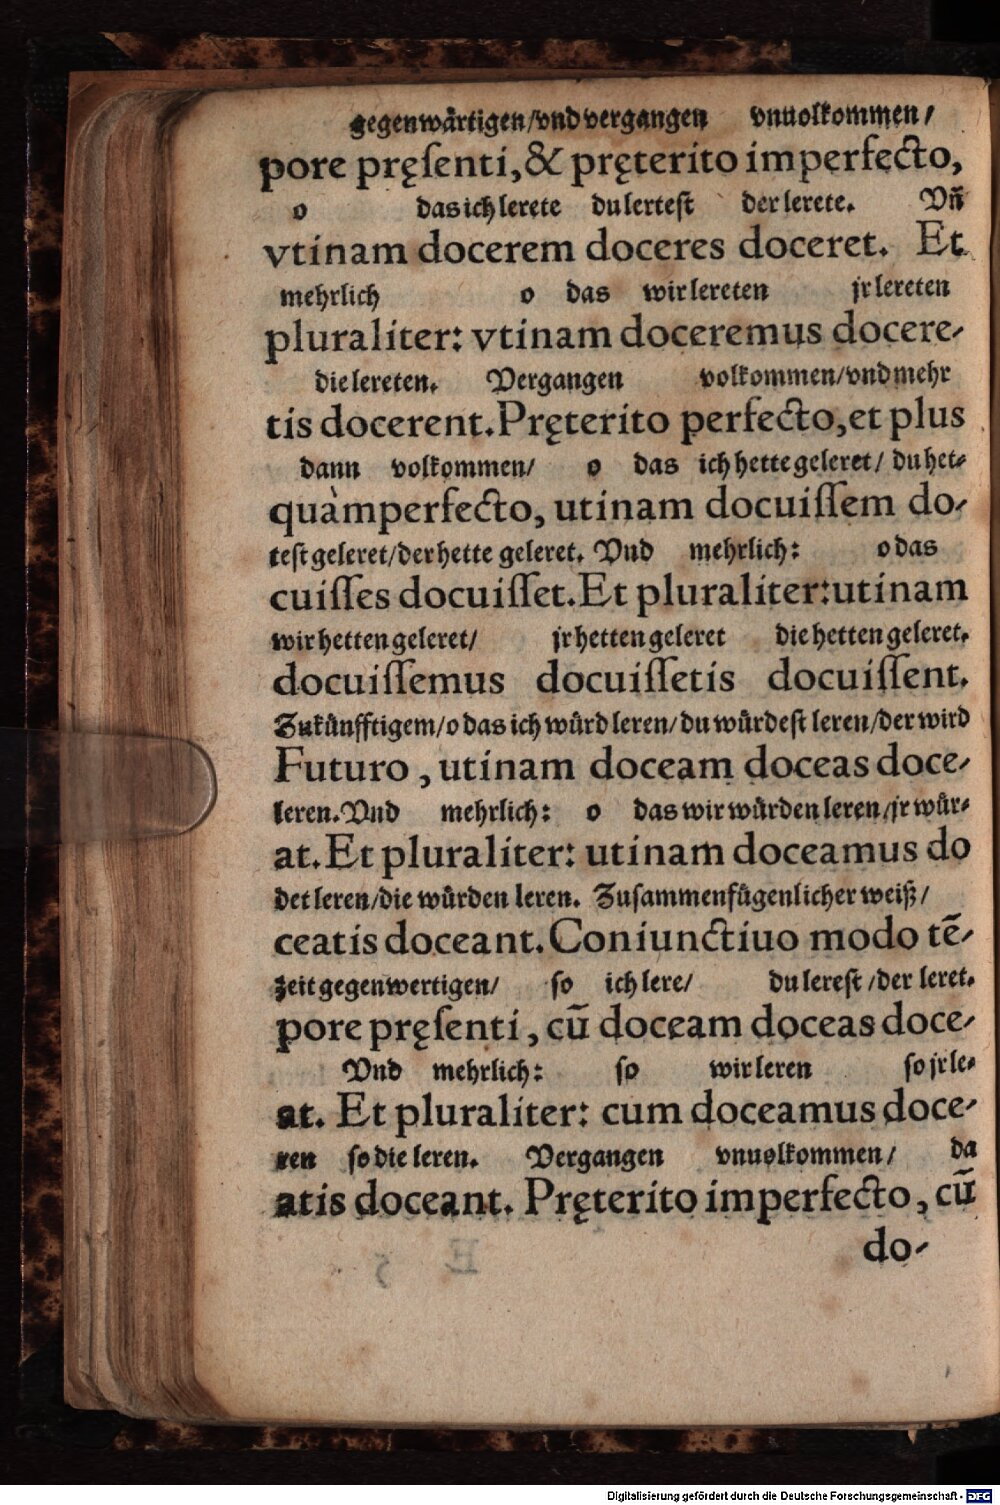 gegenwårtigen/vnd vergangen vnuolkommen/
pore pręſenti, & pręterito imperfecto,
o das ich lerete du lerteſt der lerete. Vn̄
vtinam docerem doceres doceret. Et
mehrlich o das wir lereten jr lereten
pluraliter: vtinam doceremus docere-
die lereten. Vergangen volkommen/vnd mehr
tis docerent. Pręterito perfecto, et plus
dann volkommen/ o das ich hette geleret/ du het-
quàmperfecto, utinam docuiſſem do-
teſt geleret/der hette geleret. Vnd mehrlich: o das
cuiſſes docuiſſet. Et pluraliter: utinam
wir hetten geleret/ jr hetten geleret die hetten geleret.
docuiſſemus docuiſſetis docuiſſent.
Zukůnfftigem/o das ich wůrd leren/du wůrdeſt leren/der wird
Futuro, utinam doceam doceas doce-
leren. Vnd mehrlich: o das wir wůrden leren/jr wůr-
at. Et pluraliter: utinam doceamus do
det leren/die wůrden leren. Zuſammenfůgenlicher weiß/
ceatis doceant. Coniunctiuo modo tē-
zeit gegenwertigen/ so ich lere/ du lereſt/der leret.
pore pręſenti, cū doceam doceas doce-
Vnd mehrlich: ſo wir leren ſo jr le-
at. Et pluraliter: cum doceamus doce-
ren ſo die leren. Vergangen vnuolkommen/ da
atis doceant. Pręterito imperfecto, cū
do-
Digitalisierung gefördert durch die Deutsche Forschungsgemeinschaft - DFG